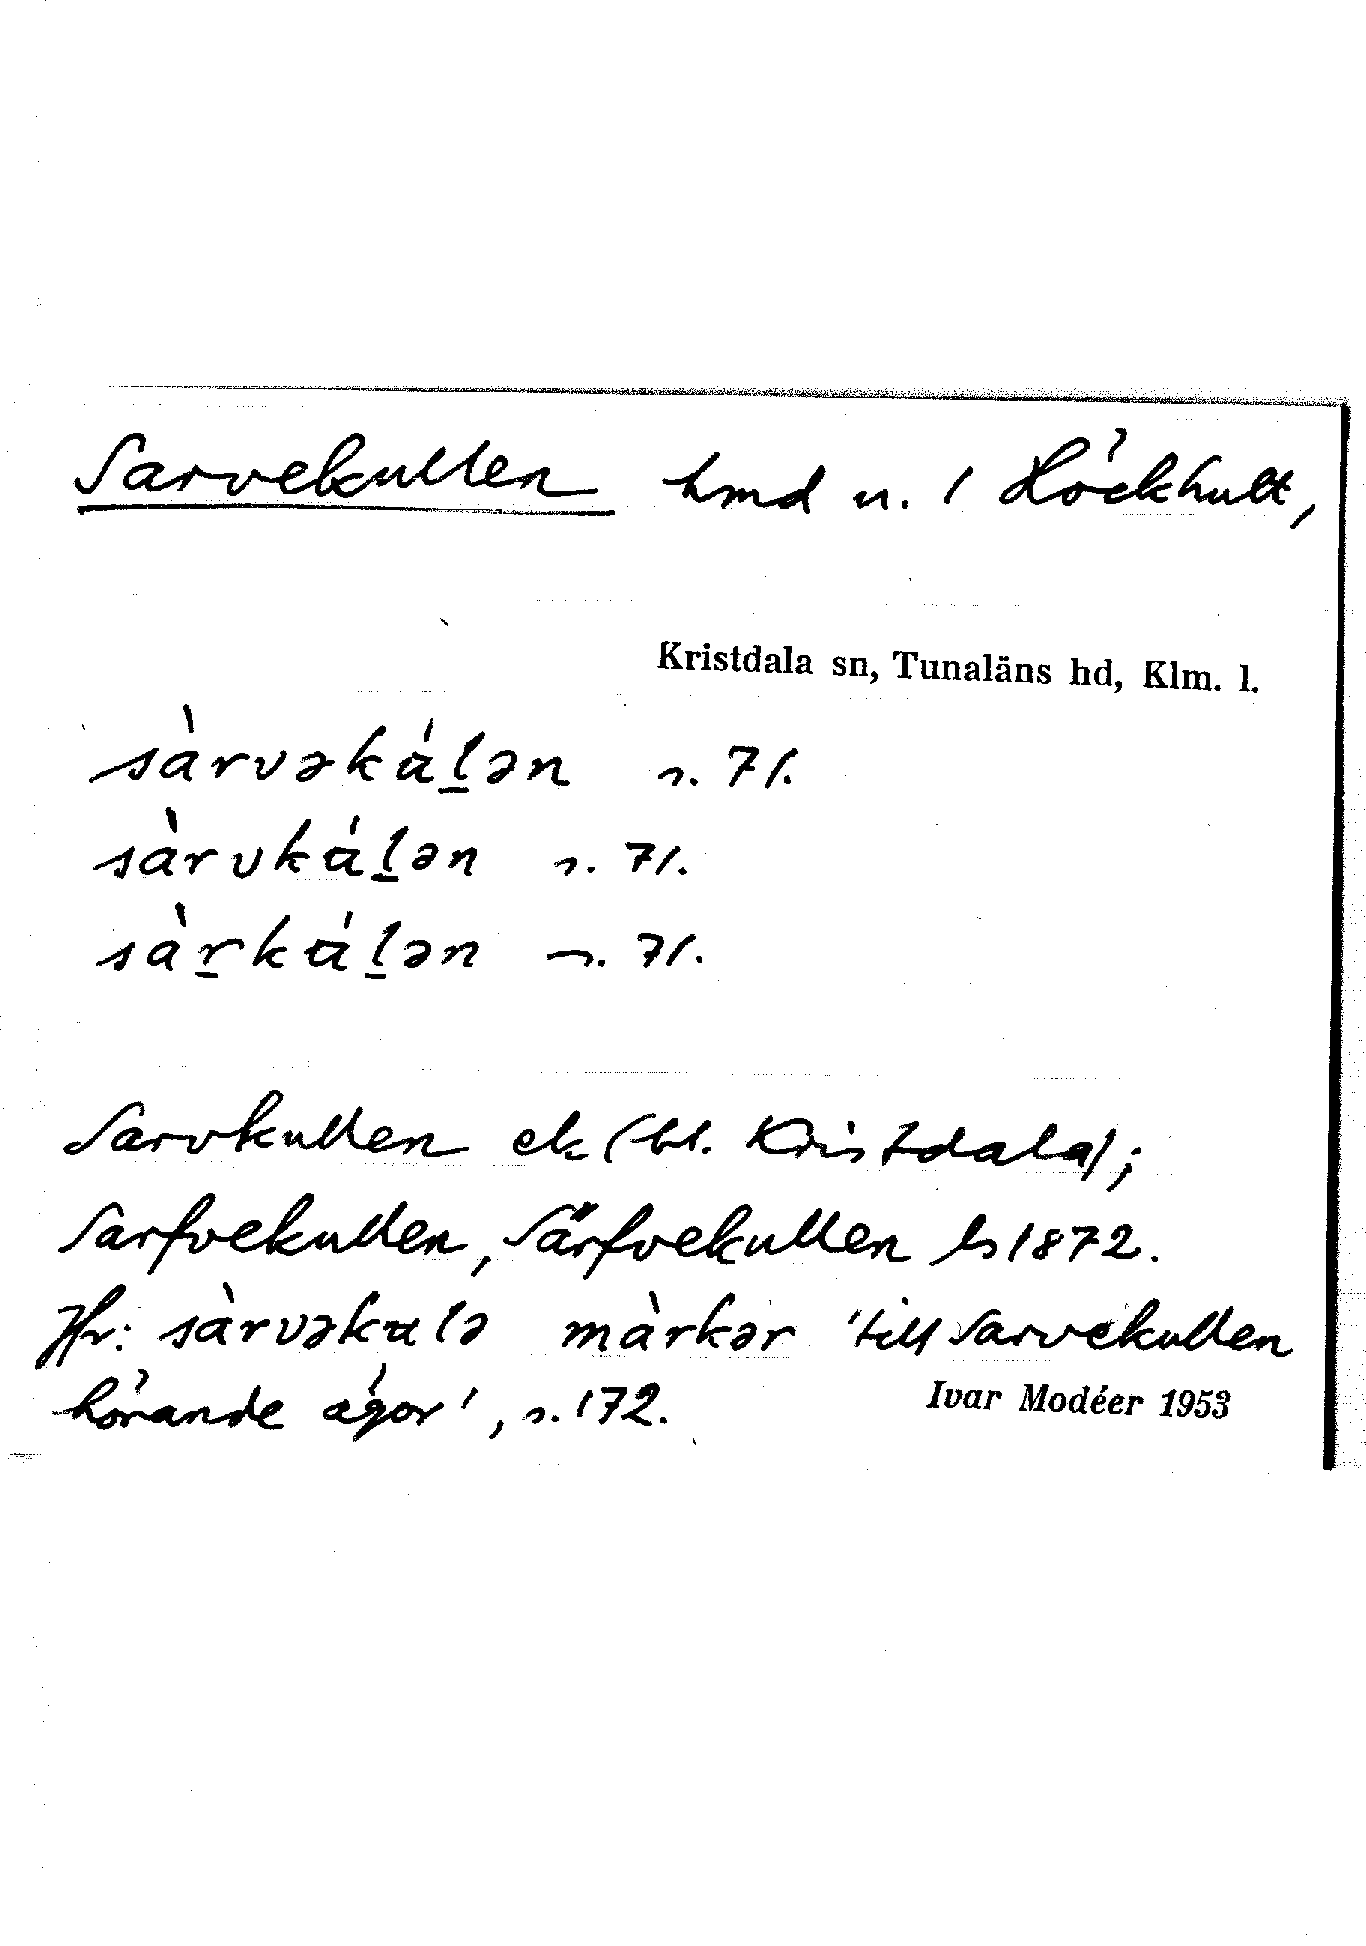 Sarvekullen hmd u. 1 Höckhult,
Kristdala sn, Tunaläns hd, Klm. l.
sàrvəkál̲ən s. 71.
sàrvkál̲ən s. 71.
sàr̲kál̲ən s. 71.
Sarvkullen ek (bl. Kristdala);
Sarfvekullen, Särfvekullen ls 1872.
Hr: sàrvəkalə màrkər 'till Sarvekullen
hörande ägor', s. 172.
Ivar Modéer 1953